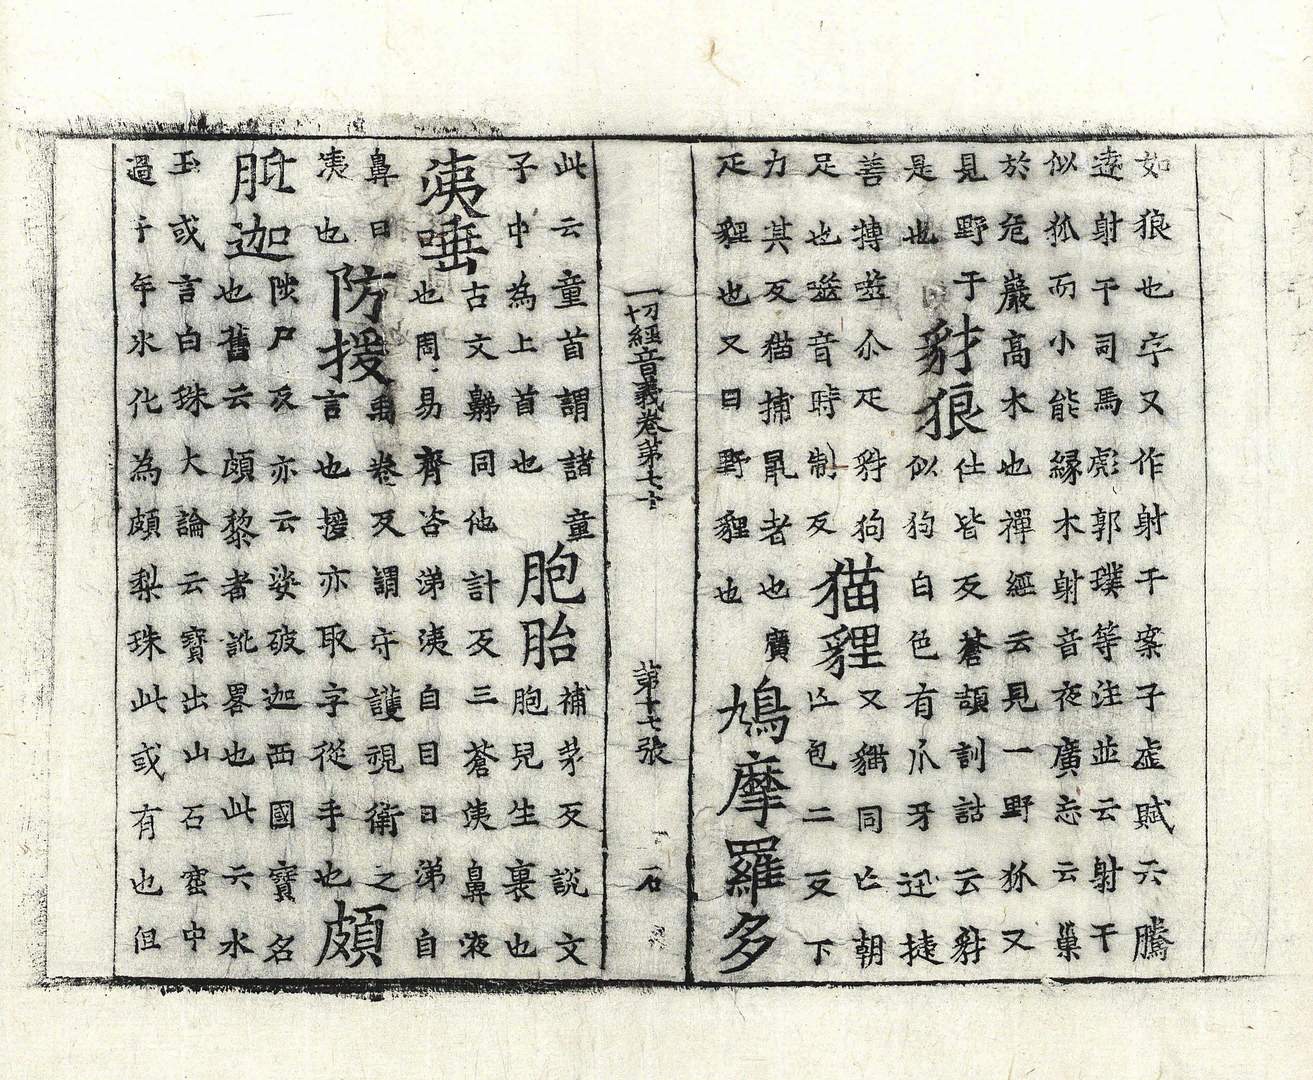 如狼也字又作射干案子虛賦云騰
遠射干司馬彪郭璞等注並云射干
似狐而小能緣木射音夜廣志云巢
於危巖高木也禪經云見一野狐又
見野干
是也
豺狼
仕皆反蒼頡訓詁云豺
似狗白色有爪牙迅捷
善搏噬尒疋豺狗
足也噬音時制反
猫貍
又猫同亡朝
亡包二反下
力其反猫捕鼠者也廣
疋貍也又曰野貍也
鳩摩羅多
一切經音義卷第七十
第十七張
石
此云童首謂諸童
子中為上首也
胞胎
補茅反說文
胞兒生裹也
洟唾
古文𪖦同他計反三蒼洟鼻液
也周易齎咨涕洟自目曰涕自
鼻曰
洟也
防援
禹卷反謂守護視衛之
言也援亦取字從手也
頗
胝迦
陟尸反亦云娑破迦西國寶名
也舊云頗黎者訛畧也此云水
玉或言白珠大論云寶出山石窟中
過千年冰化為頗梨珠此或有也但